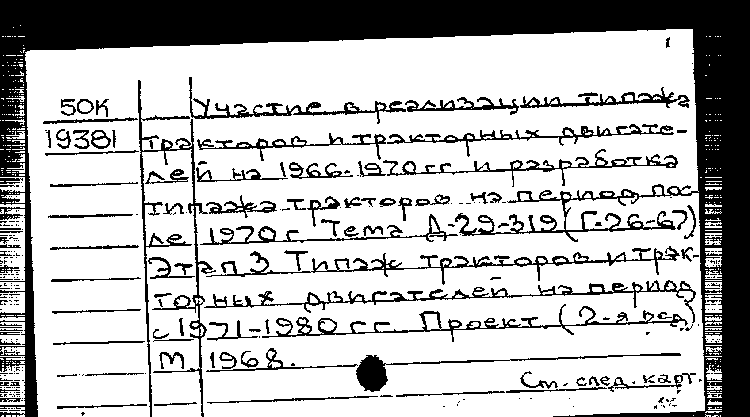 1
50К Участие в реализации типажа
19381 тракторов и тракторных двигате-
лей на 1966-1970гг и разработка
типажа тракторов на период пос-
ле 1970г Тема Д-29-319 (Г-26-67)
Этап 3. Типаж тракторов и трак-
торных двигателей на период
с 1971-1980 гг. Проект. (2-я ред)
М. 1968.
См. след. карт.